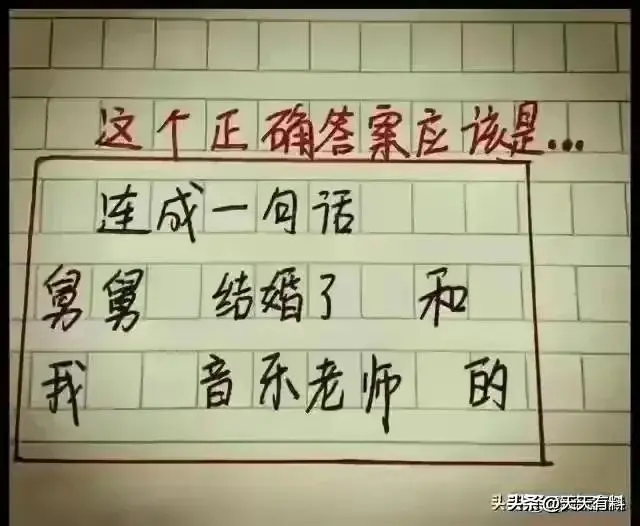 这个正确答案应该是...
连成一句话
舅舅 结婚了 和
我 音乐老师 的
头条@天天有料